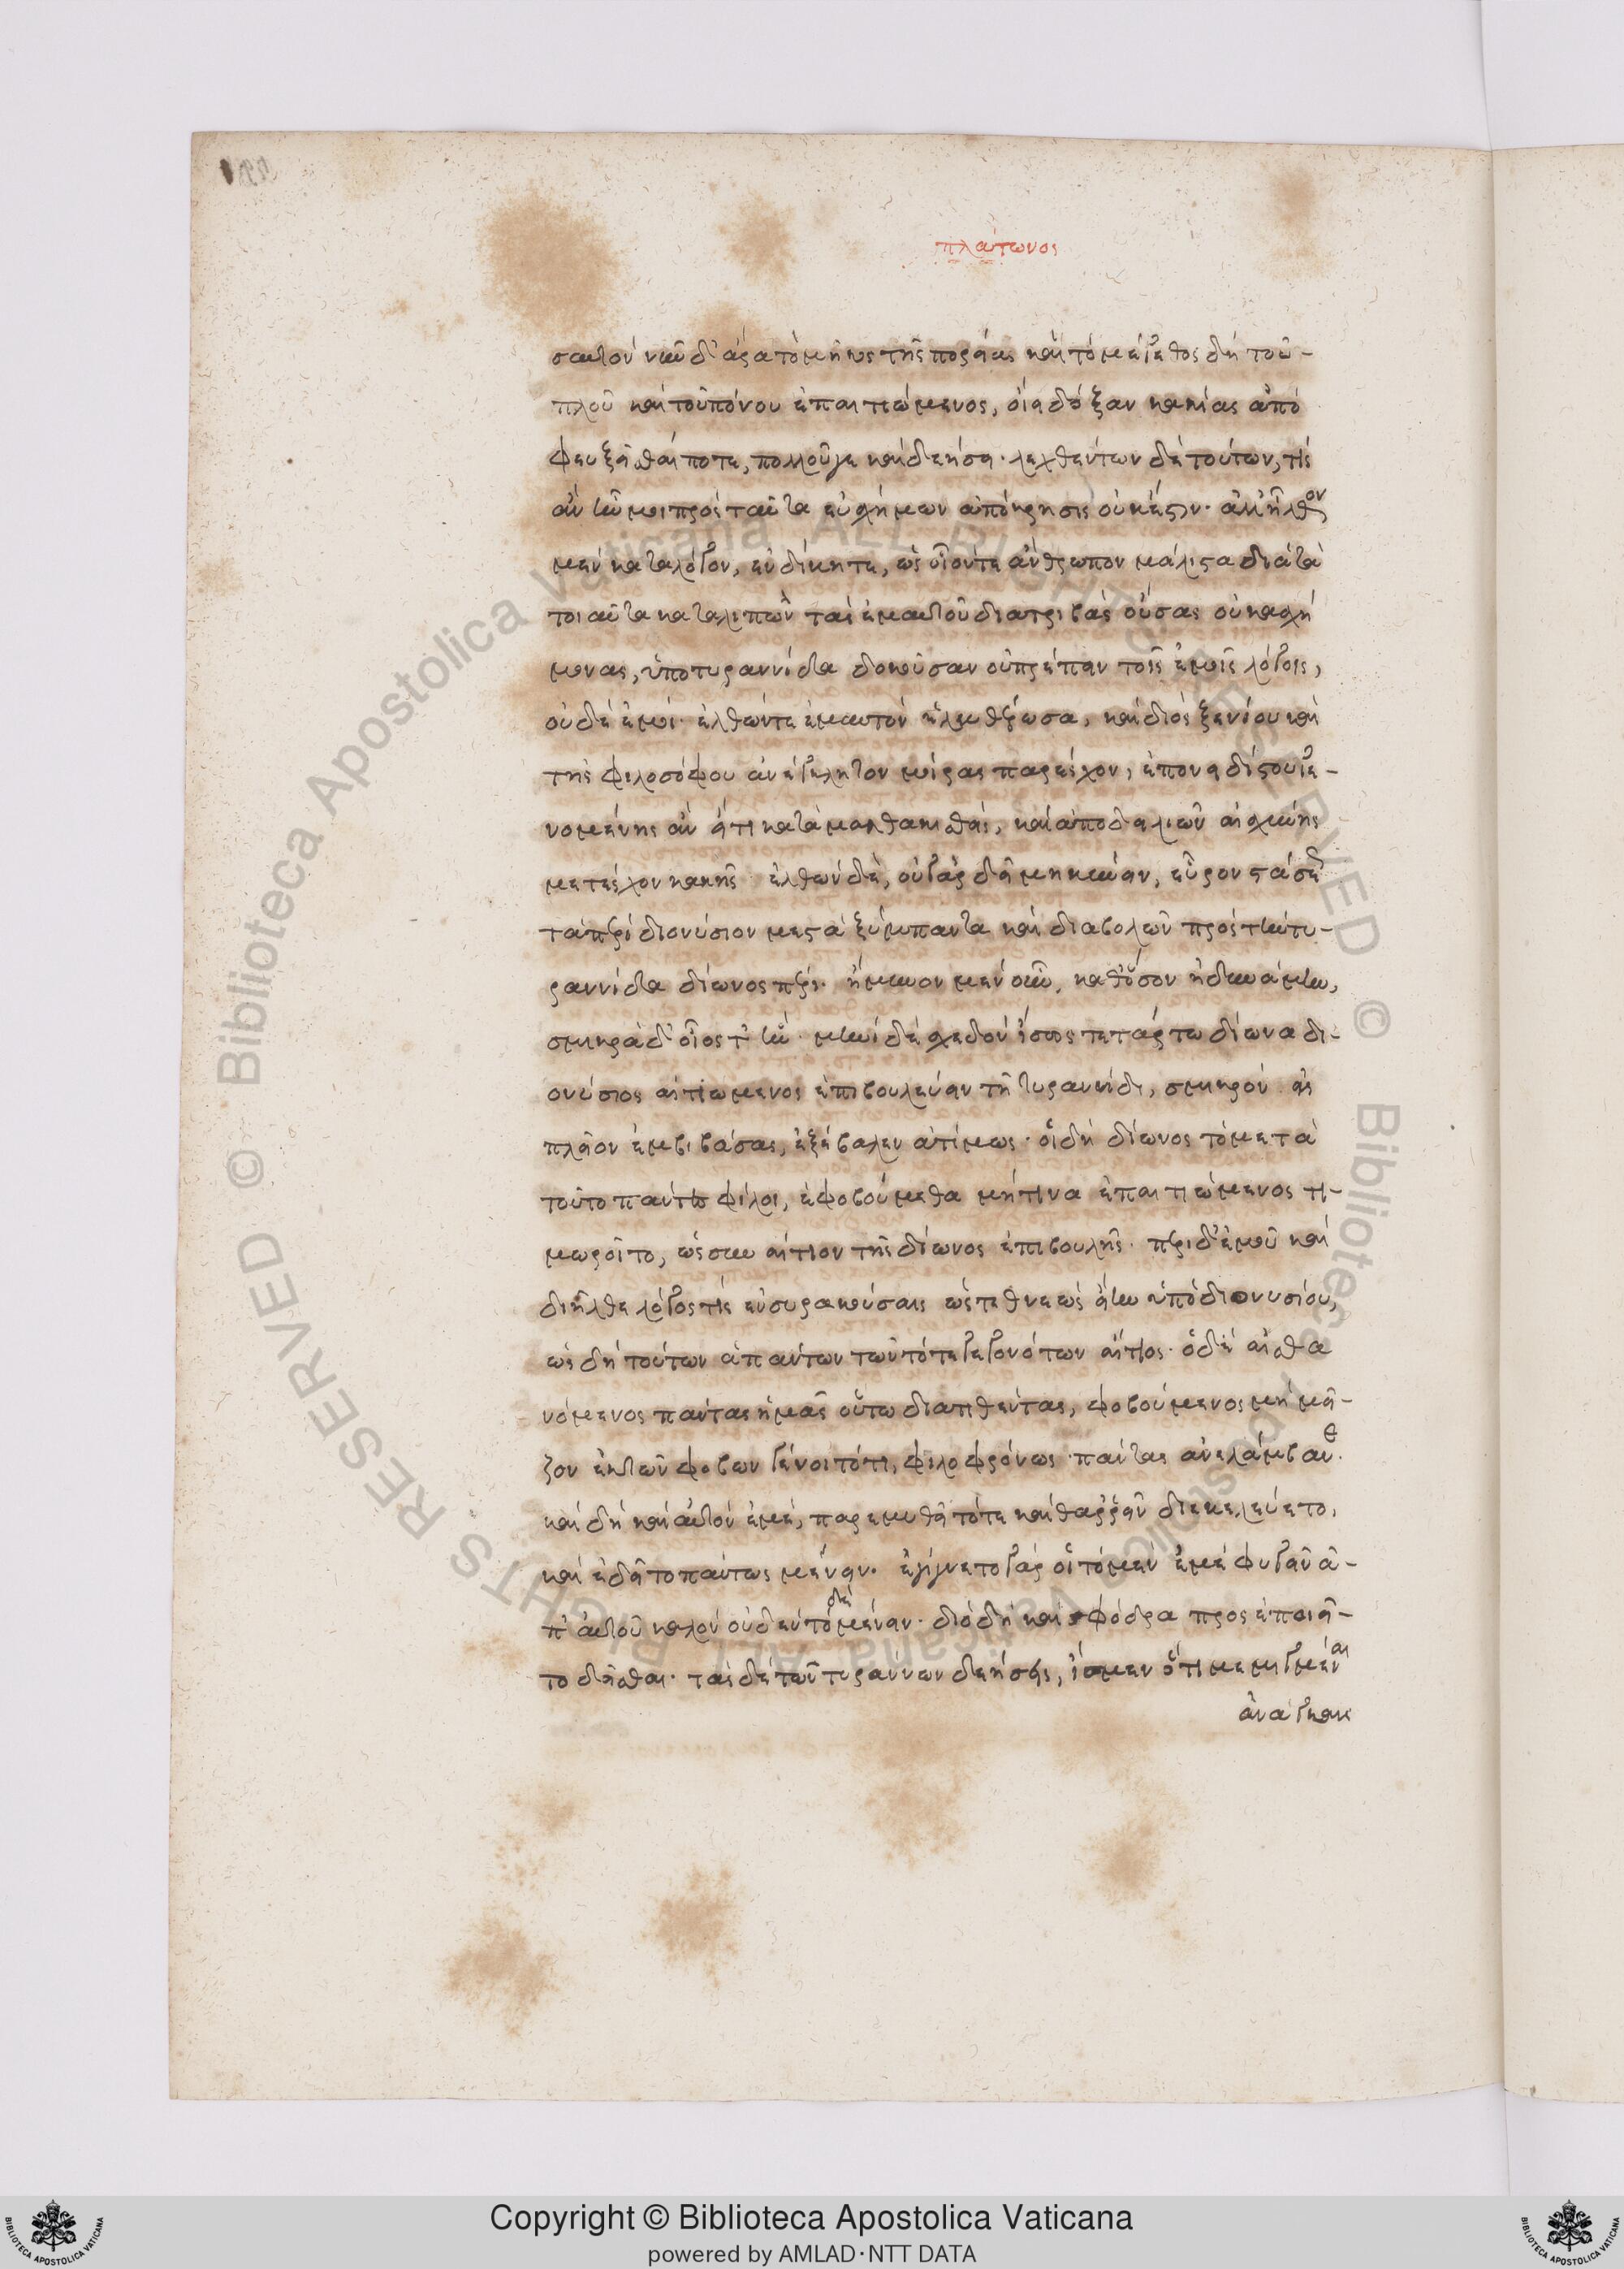 πλάτωνος
σαυτόν νῦν δ' ἄρα τὸ μῆκος τῆς πορείας καὶ τὸ μέγεθος δὴ τοῦ-
πλοῦ καὶ τοῦ πόνου ἐπαιτιώμενος, οἴει δόξαν κακίας ἀπο
φευξεῖσθαί ποτε, πολλοῦ γε καὶ δεήσει. λεχθέντων δὲ τούτων, τίς
ἂν ἦν μοι πρὸς ταῦτα εὐσχήμων ἀπόκρισις οὐκ ἔστιν. ἀλλ' ἦλθον
μὲν κατὰ λόγον, ἐν δίκῃ τε, ὡς οἷόν τε ἄνθρωπον μάλιστα διὰ τὰ
τοιαῦτα καταλιπὼν τὰς ἐμαυτοῦ διατριβὰς οὔσας οὐκ ἀσχή
μονας, ὑπὸ τυραννίδα δοκοῦσαν οὐ πρέπειν τοῖς ἐμοῖς λόγοις,
οὐδὲ ἐμοί. ἐλθών τε ἐμαυτὸν ἠλευθέρωσα, καὶ διὸς ξενίου καὶ
τῆς φιλοσόφου ἀνέγκλητον μοίρας παρέσχον, ἐπονειδίστου γε-
νομένης ἂν εἴ τι καταμαλθακισθείς, καὶ ἀποδειλιῶν αἰσχύνης
μετέσχον κακῆς. ἐλθὼν δὲ, οὐ γὰρ δεῖ μηκύνειν, εὗρον στάσεως
τὰ περὶ διονύσιον μεστὰ ξύμπαντα καὶ διαβολῶν πρὸς τὴν τυ-
ραννίδα δίωνος πέρι. ἤμυνον μὲν οὖν, καθ' ὅσον ἠδυνάμην,
σμικρὰ δ' οἷός τ' ἦν. μηνὶ δὲ σχεδὸν ἴσως τετάρτω δίωνα δι-
ονύσιος αἰτιώμενος ἐπιβουλεύειν τῆ τυραννίδι, σμικρὸν εἰς
πλοῖον ἐμβιβάσας, ἐξέβαλεν ἀτίμως. οἱ δὴ δίωνος τὸ μετὰ
τοῦτο πάντες φίλοι, ἐφοβούμεθα μή τινα ἐπαιτιώμενος τι-
μωροῖτο, ὡς συναίτιον τῆς δίωνος ἐπιβουλῆς. περὶ δ' ἐμοῦ καὶ
διῆλθε λόγος τὶς ἐν συρακούσαις ὡς τεθνεὼς εἴην ὑπὸ διονυσίου,
ὡς δὴ τούτων ἁπάντων τῶν τότε γεγονότων αἴτιος. ὁ δὲ αἰσθα
νόμενος πάντας ἡμᾶς οὕτω διατιθέντας, φοβούμενος μὴ μεῖ-
ζον ἐκ τῶν φόβων γένοιτό τι, φιλοφρόνως πάντας ἀνελάμβανε.
καὶ δὴ καὶ αὐτὸν ἐμὲ, παρεμυθεῖτό τε καὶ θαῤῥεῖν διεκελεύετο,
καὶ ἐδεῖτο πάντως μένειν. ἐγίγνετο γάρ οἱ τὸ μὲν ἐμὲ φυγεῖν ἀ-
π' αὐτοῦ καλὸν οὐδὲν τὸ δὲ μένειν. διὸ δὴ καὶ σφόδρα προσεποιεῖ-
το δεῖσθαι. τὰς δὲ τῶν τυράννων δεήσεις, ἴσμεν ὅτι μεμιγμέναι
ἀνάγκαις